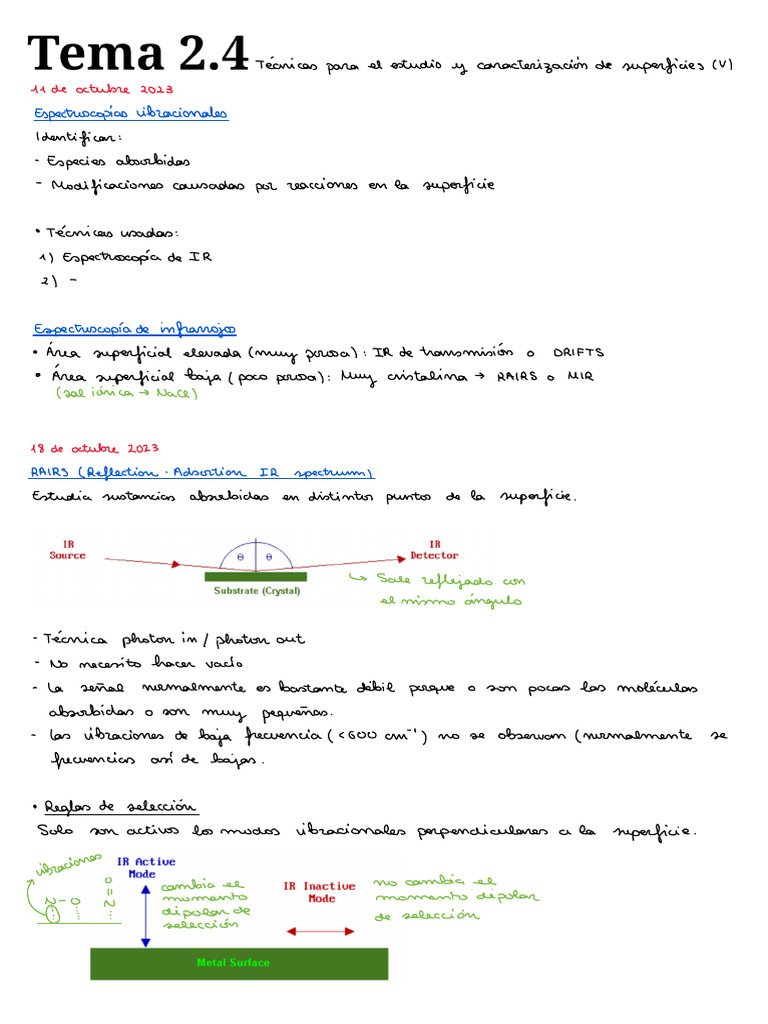 Tema 2.4 Técnicas para el estudio y caracterización de superficies (V)
11 de octubre 2023
Espectroscopías vibracionales
Identificar:
- Especies absorbidas
- Modificaciones causadas por reacciones en la superficie
• Técnicas usadas:
1) Espectroscopía de IR
2) -
Espectroscopía de infrarrojo
• Área superficial elevada (muy porosa): IR de transmisión o DRIFTS
• Área superficial baja (poco porosa): Muy cristalina → RAIRS o MIR
(sal iónica → NaCl)
18 de octubre 2023
RAIRS (Reflection - Adsortion IR spectrum)
Estudia sustancias absorbidas en distintos puntos de la superficie.
IR Source
θ θ
IR Detector
Substrate (Crystal)
↳ Sale reflejado con
el mismo ángulo
- Técnica photon in / photon out
- No necesito hacer vacío
- La señal normalmente es bastante débil porque o son pocas las moléculas
absorbidas o son muy pequeñas.
- Las vibraciones de baja frecuencia (<600 cm⁻¹) no se observan (normalmente se
frecuencias así de bajas.
• Reglas de selección
Solo son activos los modos vibracionales perpendiculares a la superficie.
vibraciones
N-O
O
=
N
IR Active
Mode
cambia el
momento
dipolar de
selección
IR Inactive
Mode
no cambia el
momento dipolar
de selección
Metal Surface